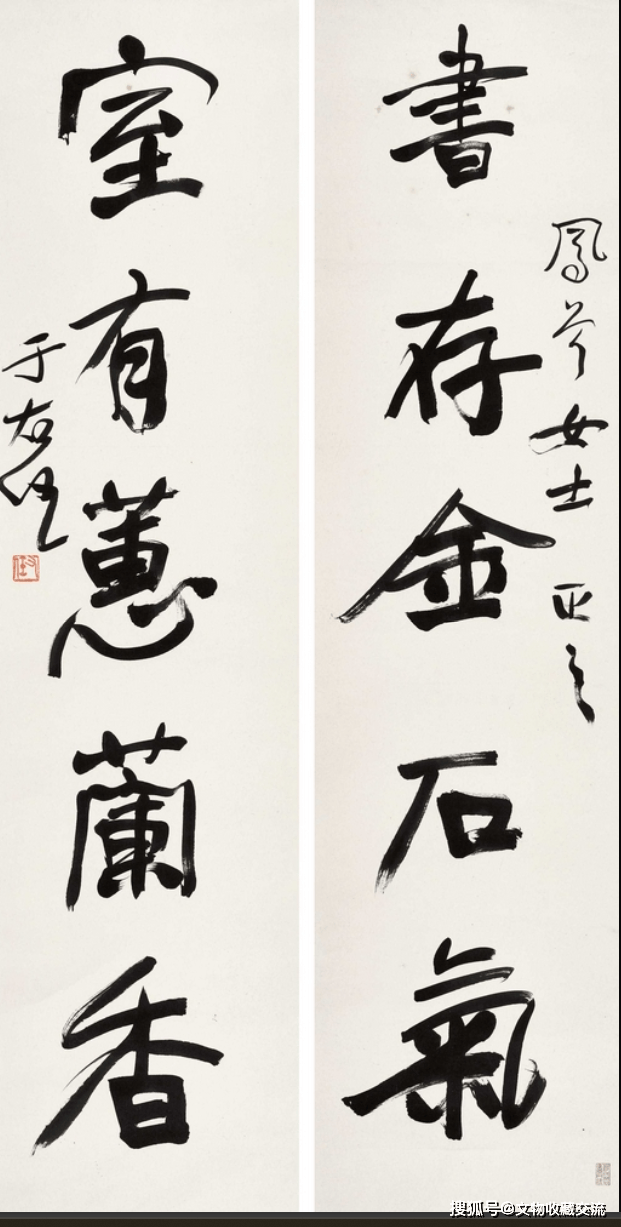 鳳 女士 正之
書存金石氣
室有蕙蘭香
于右任
右任
搜狐号@文物收藏交流